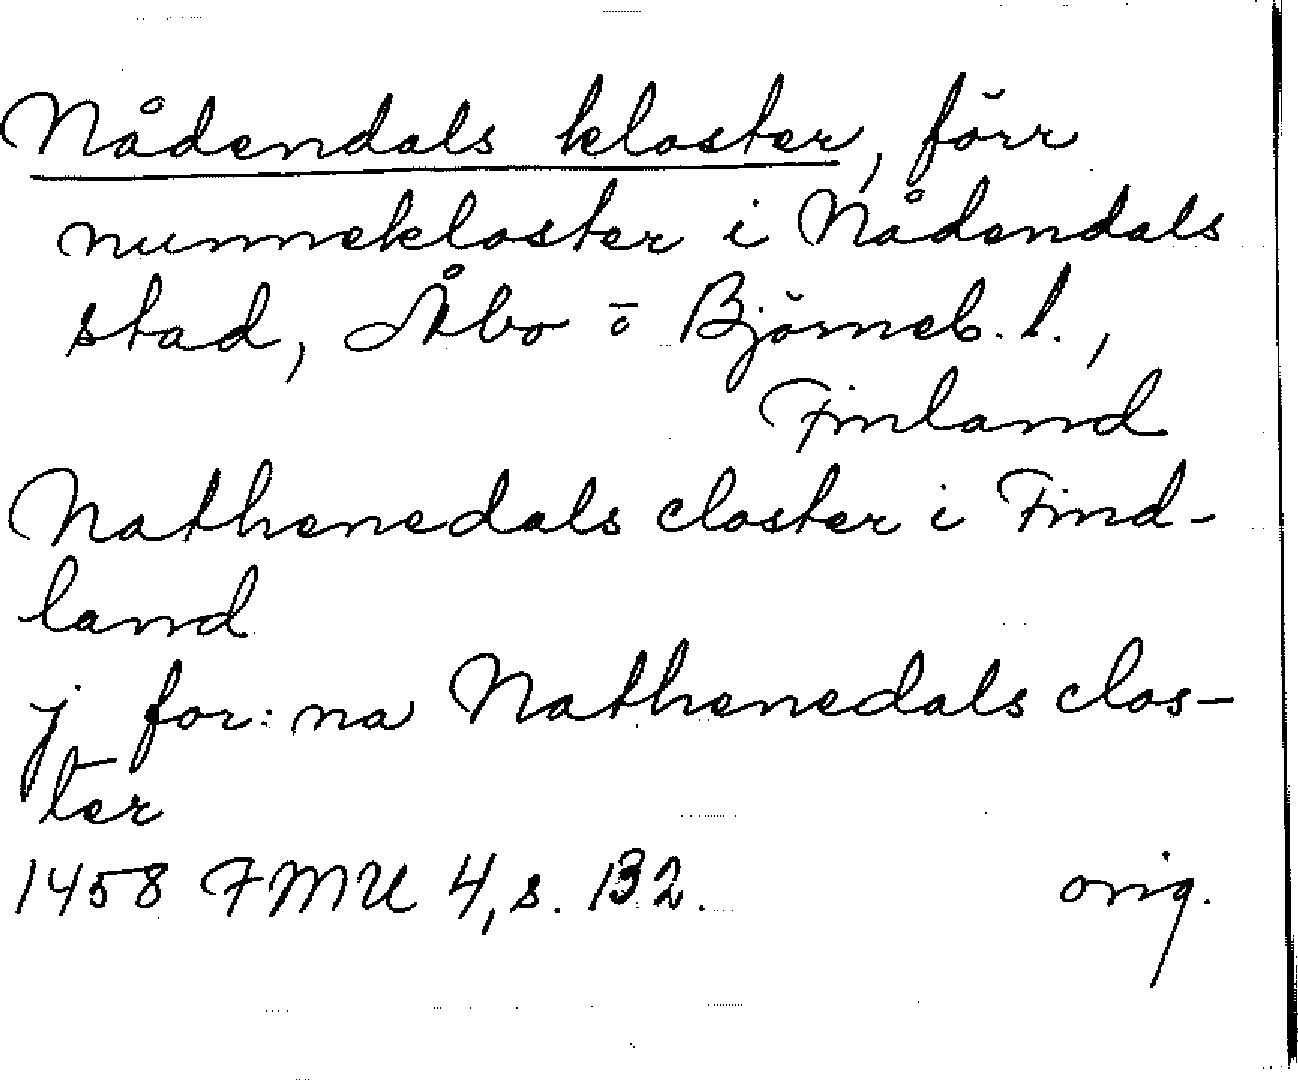 Nådendals kloster, förr
nunnekloster i Nådendals
stad, Åbo o Björneb. l.,
Finland
Nathenedals closter i Find-
land
j for: na Nathenedals clos-
ter
1458 FMU 4, s. 132. orig.